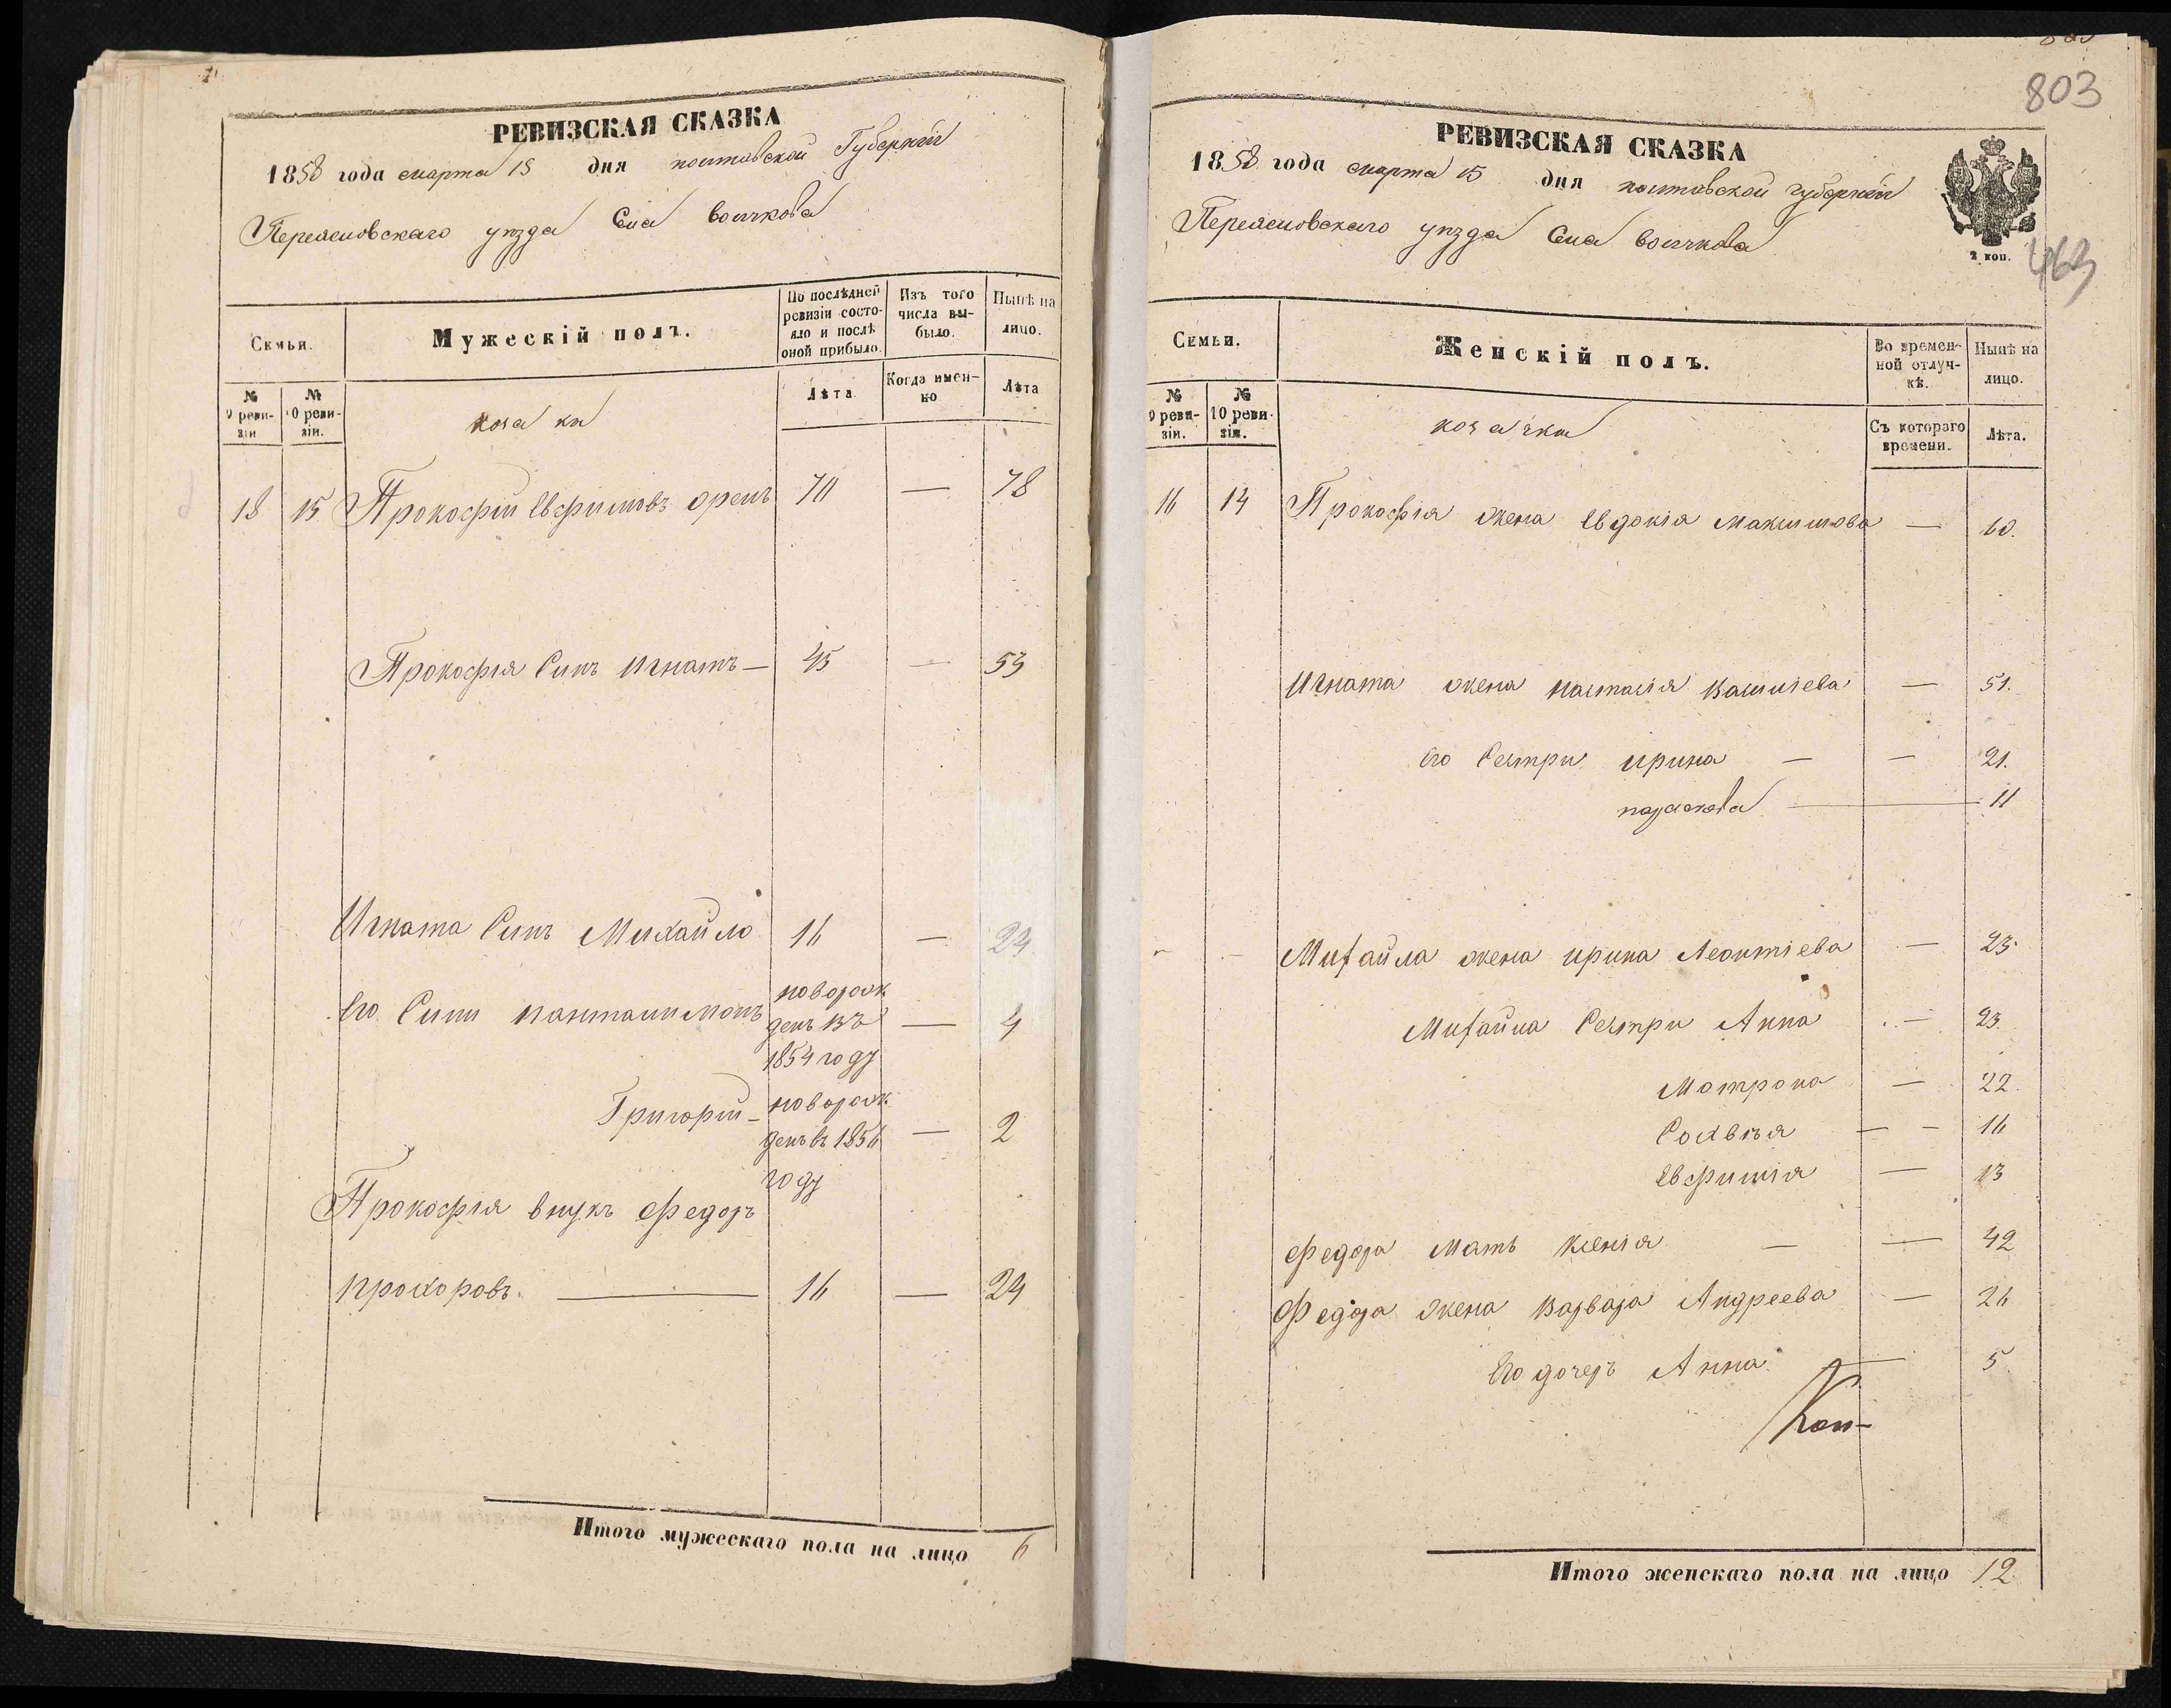 РЕВИЗСКАЯ СКАЗКА
1858 года марта 15 дня полтавской Губерніи
Переясловскаго уезда Села вончкова
Семьи.
Мужескій полъ.
По послѣдней ревизіи состояло и послѣ оной прибыло.
Изъ того числа выбыло.
Нынѣ на лицо.
№ 9 ревизіи
№ 10 ревизіи.
козаки
Лѣта
Когда именно
Лѣта
18 15 Прокофій Евфимовъ орелъ 70 — 78
Прокофія Синъ Игнатъ — 45 — 53
Игната Синъ Михайло 16 — 24
Его Сини Пантелимонъ новорожденъ въ 1854 году — 4
Григорій — новорожденъ въ 1856 году — 2
Прокофія внукъ Федоръ
Прохоровъ — 16 — 24
Итого мужескаго пола на лицо 6
803
РЕВИЗСКАЯ СКАЗКА
1858 года марта 15 дня полтавской губерніи
Переясловскаго уезда Села вончкова
2 коп.
463
Семьи.
Женскій полъ.
Во временной отлучкѣ.
Нынѣ на лицо.
№ 9 ревизіи.
№ 10 ревизіи.
козачки
Съ котораго времени.
Лѣта.
16 14 Прокофія жена Евдокія Максимова — 60.
Игната жена настасія Василіева — 51.
Его Сестри ирина — — 21.
параскева — 11
Михайла жена ирина Леонтіева — 23.
Михайла Сестри Анна — 23.
Мотрона — 22.
Соловія — — 16
Евфимія — 13
Федора мать ксенія — — 42
Федора жена Варвара Андреева — 26
Его дочеръ Анна — 5
Кон-
Итого женскаго пола на лицо 12